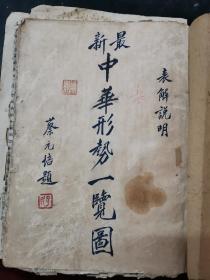 表解說明
最新
中華形勢一覽圖
蔡元培題